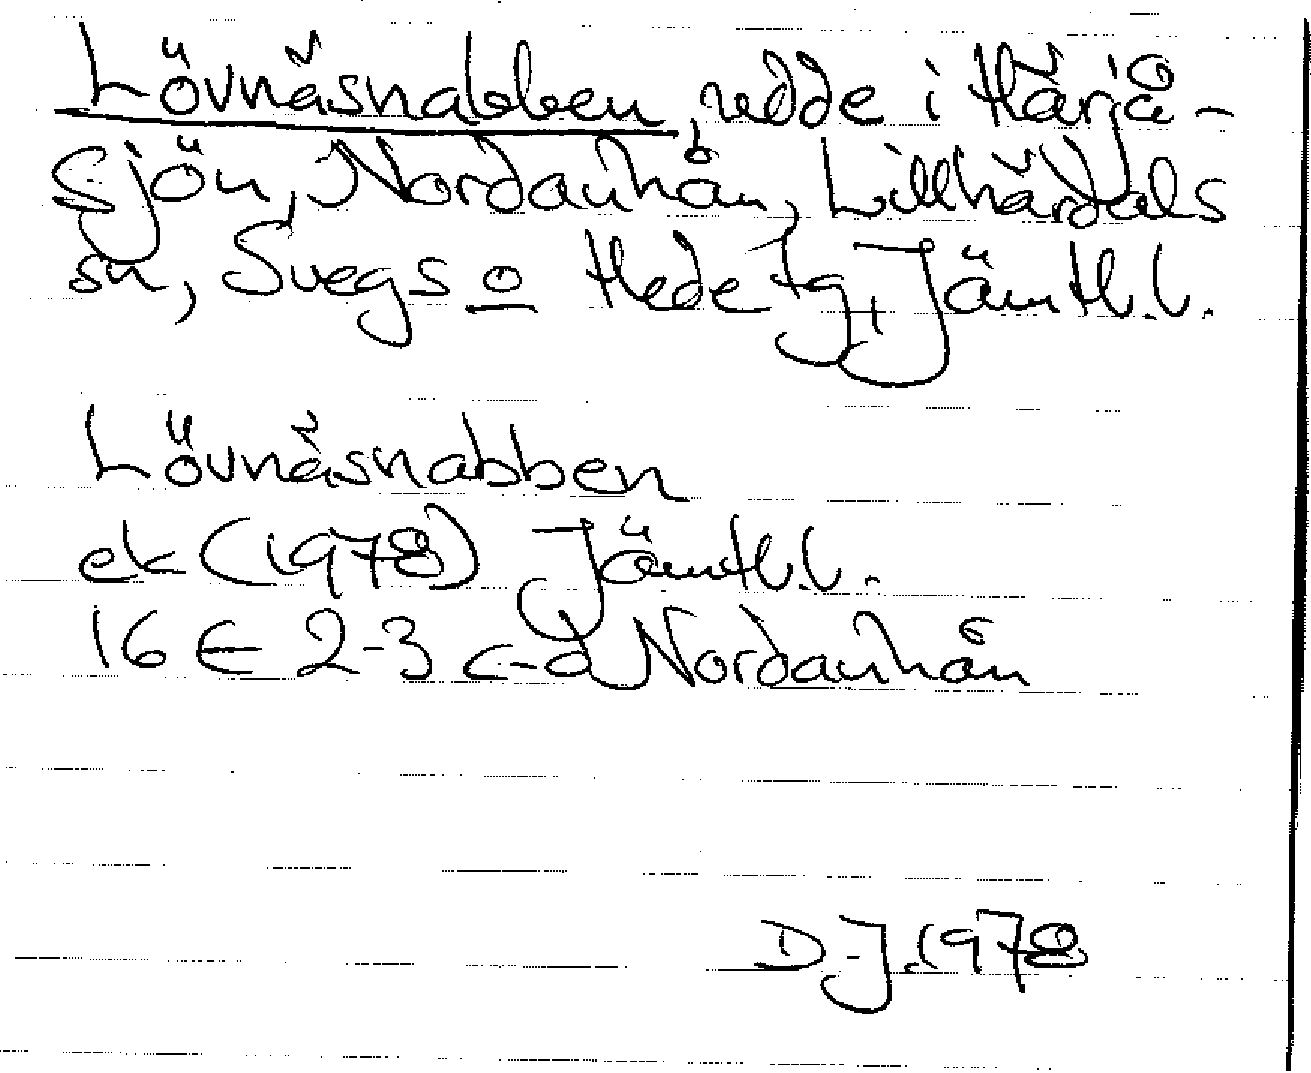 Lövnäsnabben, udde i Härjå-
sjön, Nordanhån, Lillhärdals
sn, Svegs o Hede tg, Jämtl.l.
Lövnäsnabben
ek (1978) Jämtl.l.
16 E 2-3 c-d Nordanhån
D-J 1978